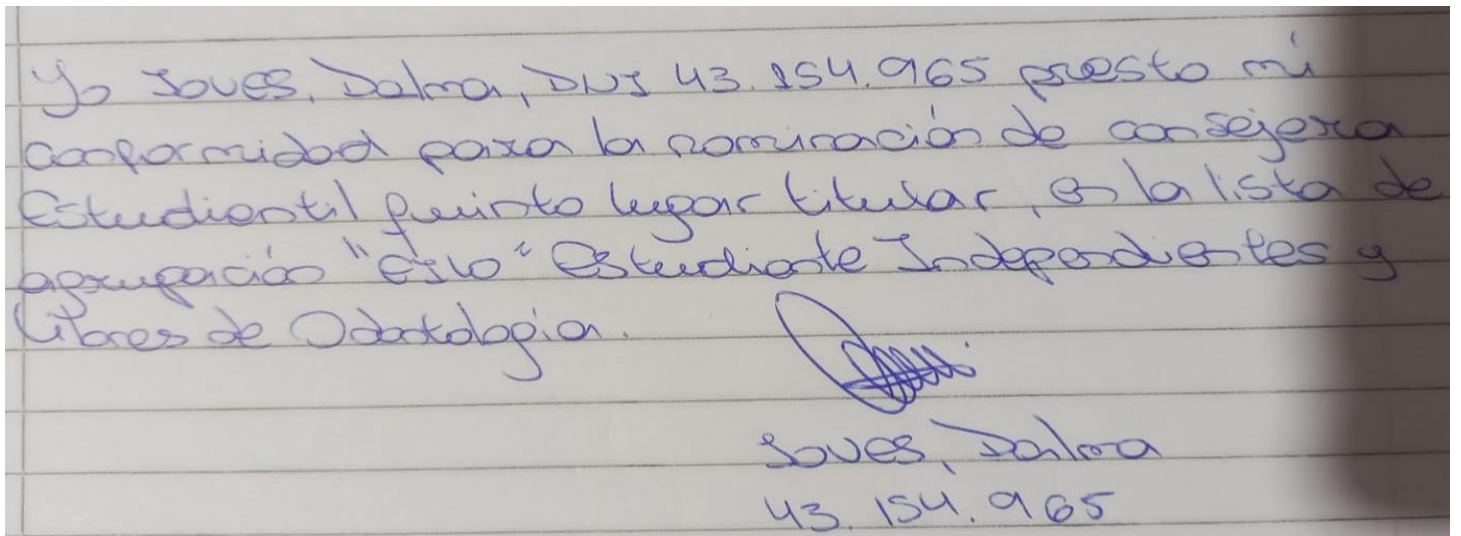 Yo Joves, Dalma, DNI 43.154.965 presto mi
conformidad para la nominación de consejera
Estudiantil quinto lugar titular, en la lista de
agrupación "EILO" Estudiante Independientes y
libres de Odontologia.
Joves, Dalma
43.154.965